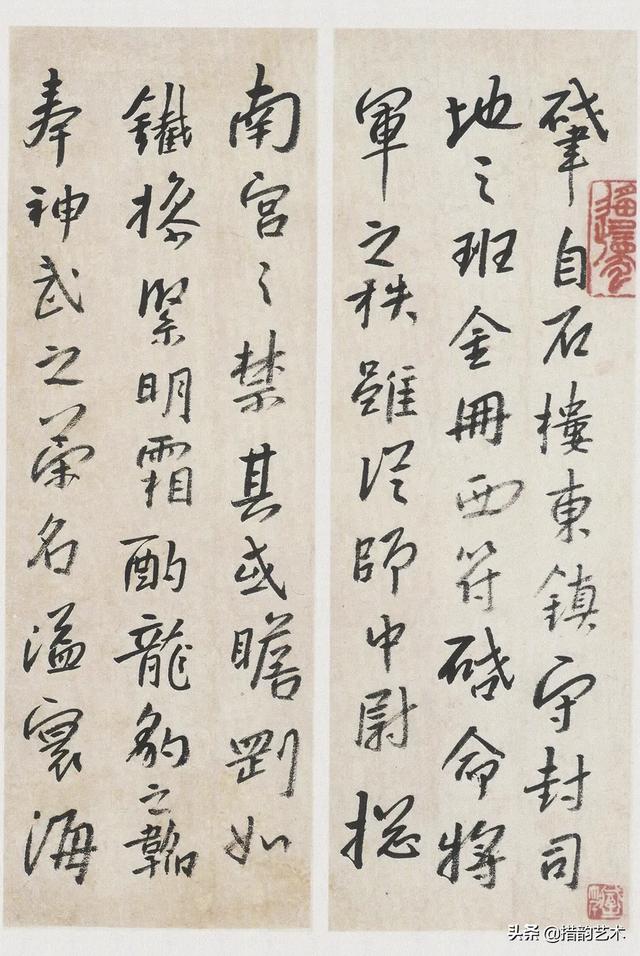 肇自石樓東鎮守封司
地之班金冊西符啓命將
軍之秩雖從師中尉摠
南宮之禁其或膽剛如
鐵操緊明霜酌龍豹之韜
奉神武之榮名溢寰海
头条 @措韵艺术